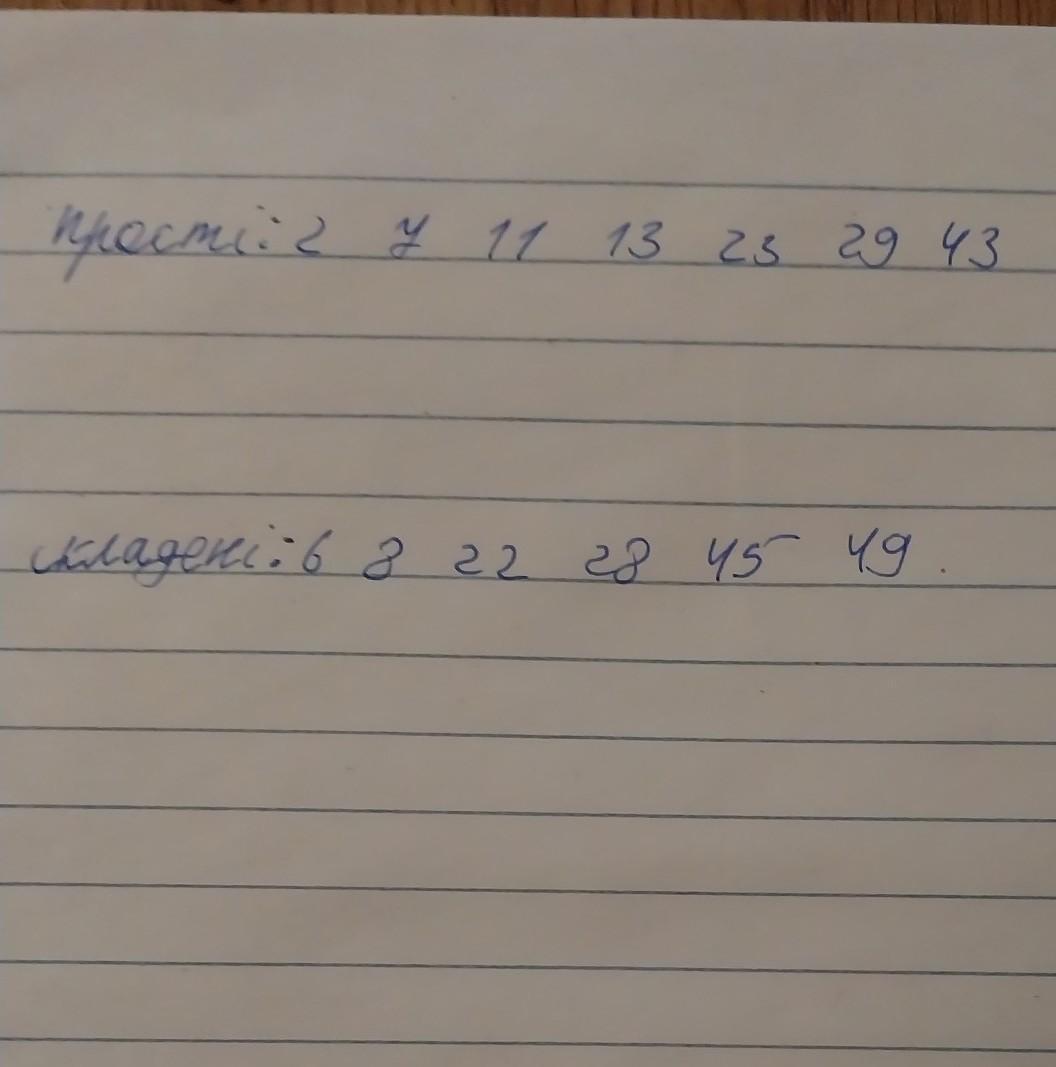 прості: 2 7 11 13 23 29 43
складені: 6 8 22 28 45 49.